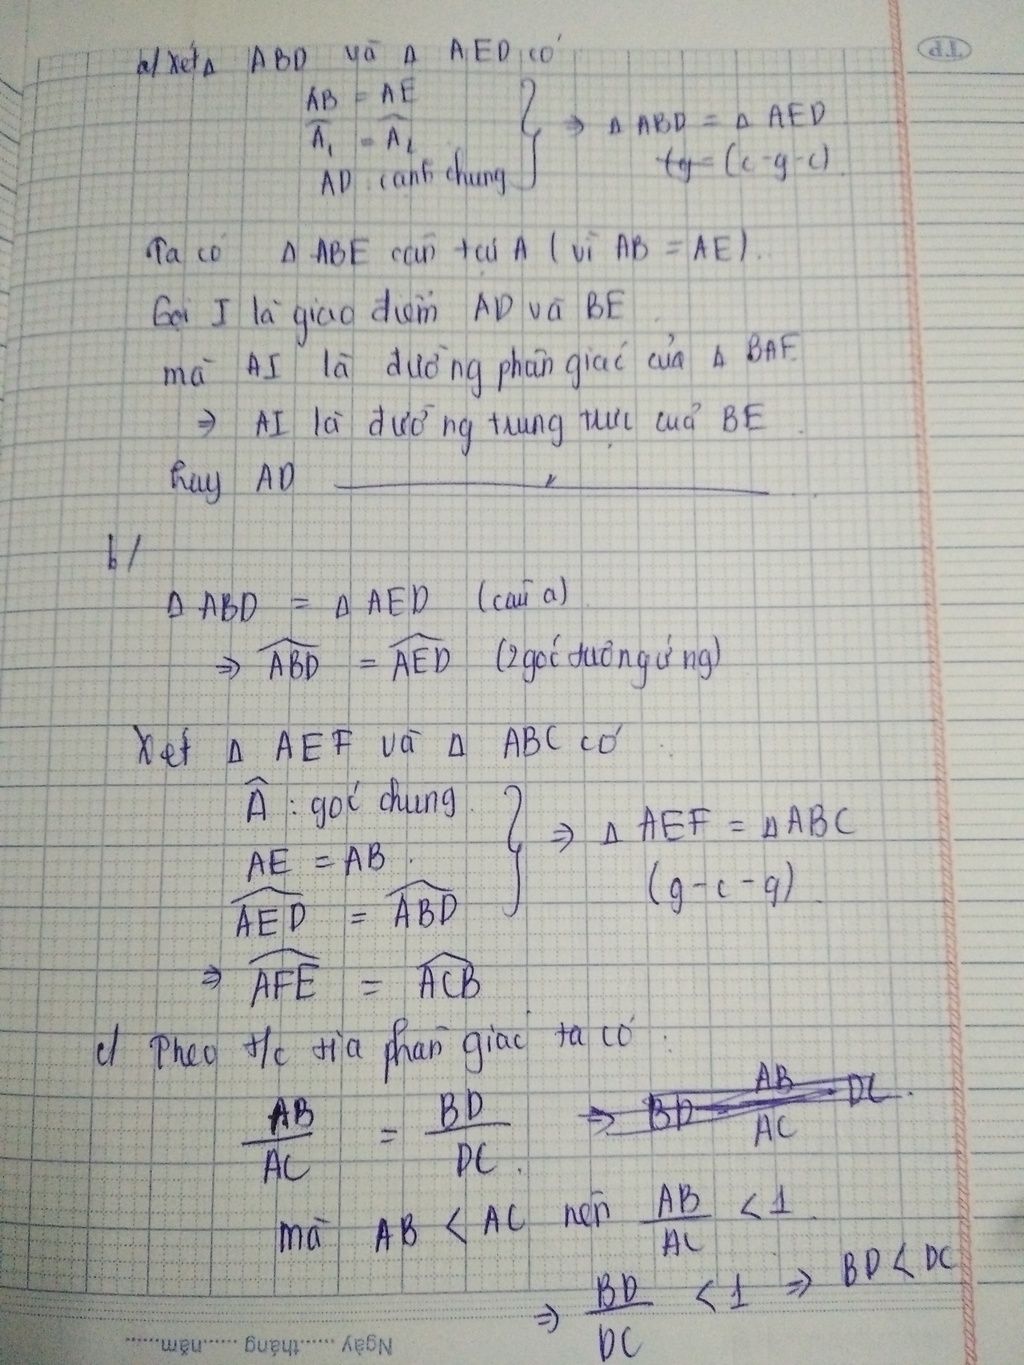 TP
a/ Xét Δ ABD và Δ AED có
AB = AE
Â₁ = Â₂ ⇒ Δ ABD = Δ AED
AD cạnh chung (c-g-c)
Ta có Δ ABE cân tại A (vì AB = AE).
Gọi I là giao điểm AD và BE.
mà AI là đường phân giác của Δ BAE
⇒ AI là đường trung trực của BE.
hay AD ———〃———.
b/
Δ ABD = Δ AED (câu a)
⇒ \widehat{ABD} = \widehat{AED} (2 góc tương ứng)
Xét Δ AEF và Δ ABC có:
Â : góc chung.
AE = AB. ⇒ Δ AEF = Δ ABC
\widehat{AED} = \widehat{ABD} (g-c-g)
⇒ \widehat{AFE} = \widehat{ACB}
c/ Theo t/c tia phân giác ta có:
AB/AC = BD/DC. ⇒ BD = AB/AC DC.
mà AB < AC nên AB/AC < 1.
⇒ BD/DC < 1 ⇒ BD < DC
Ngày ......tháng ......năm......